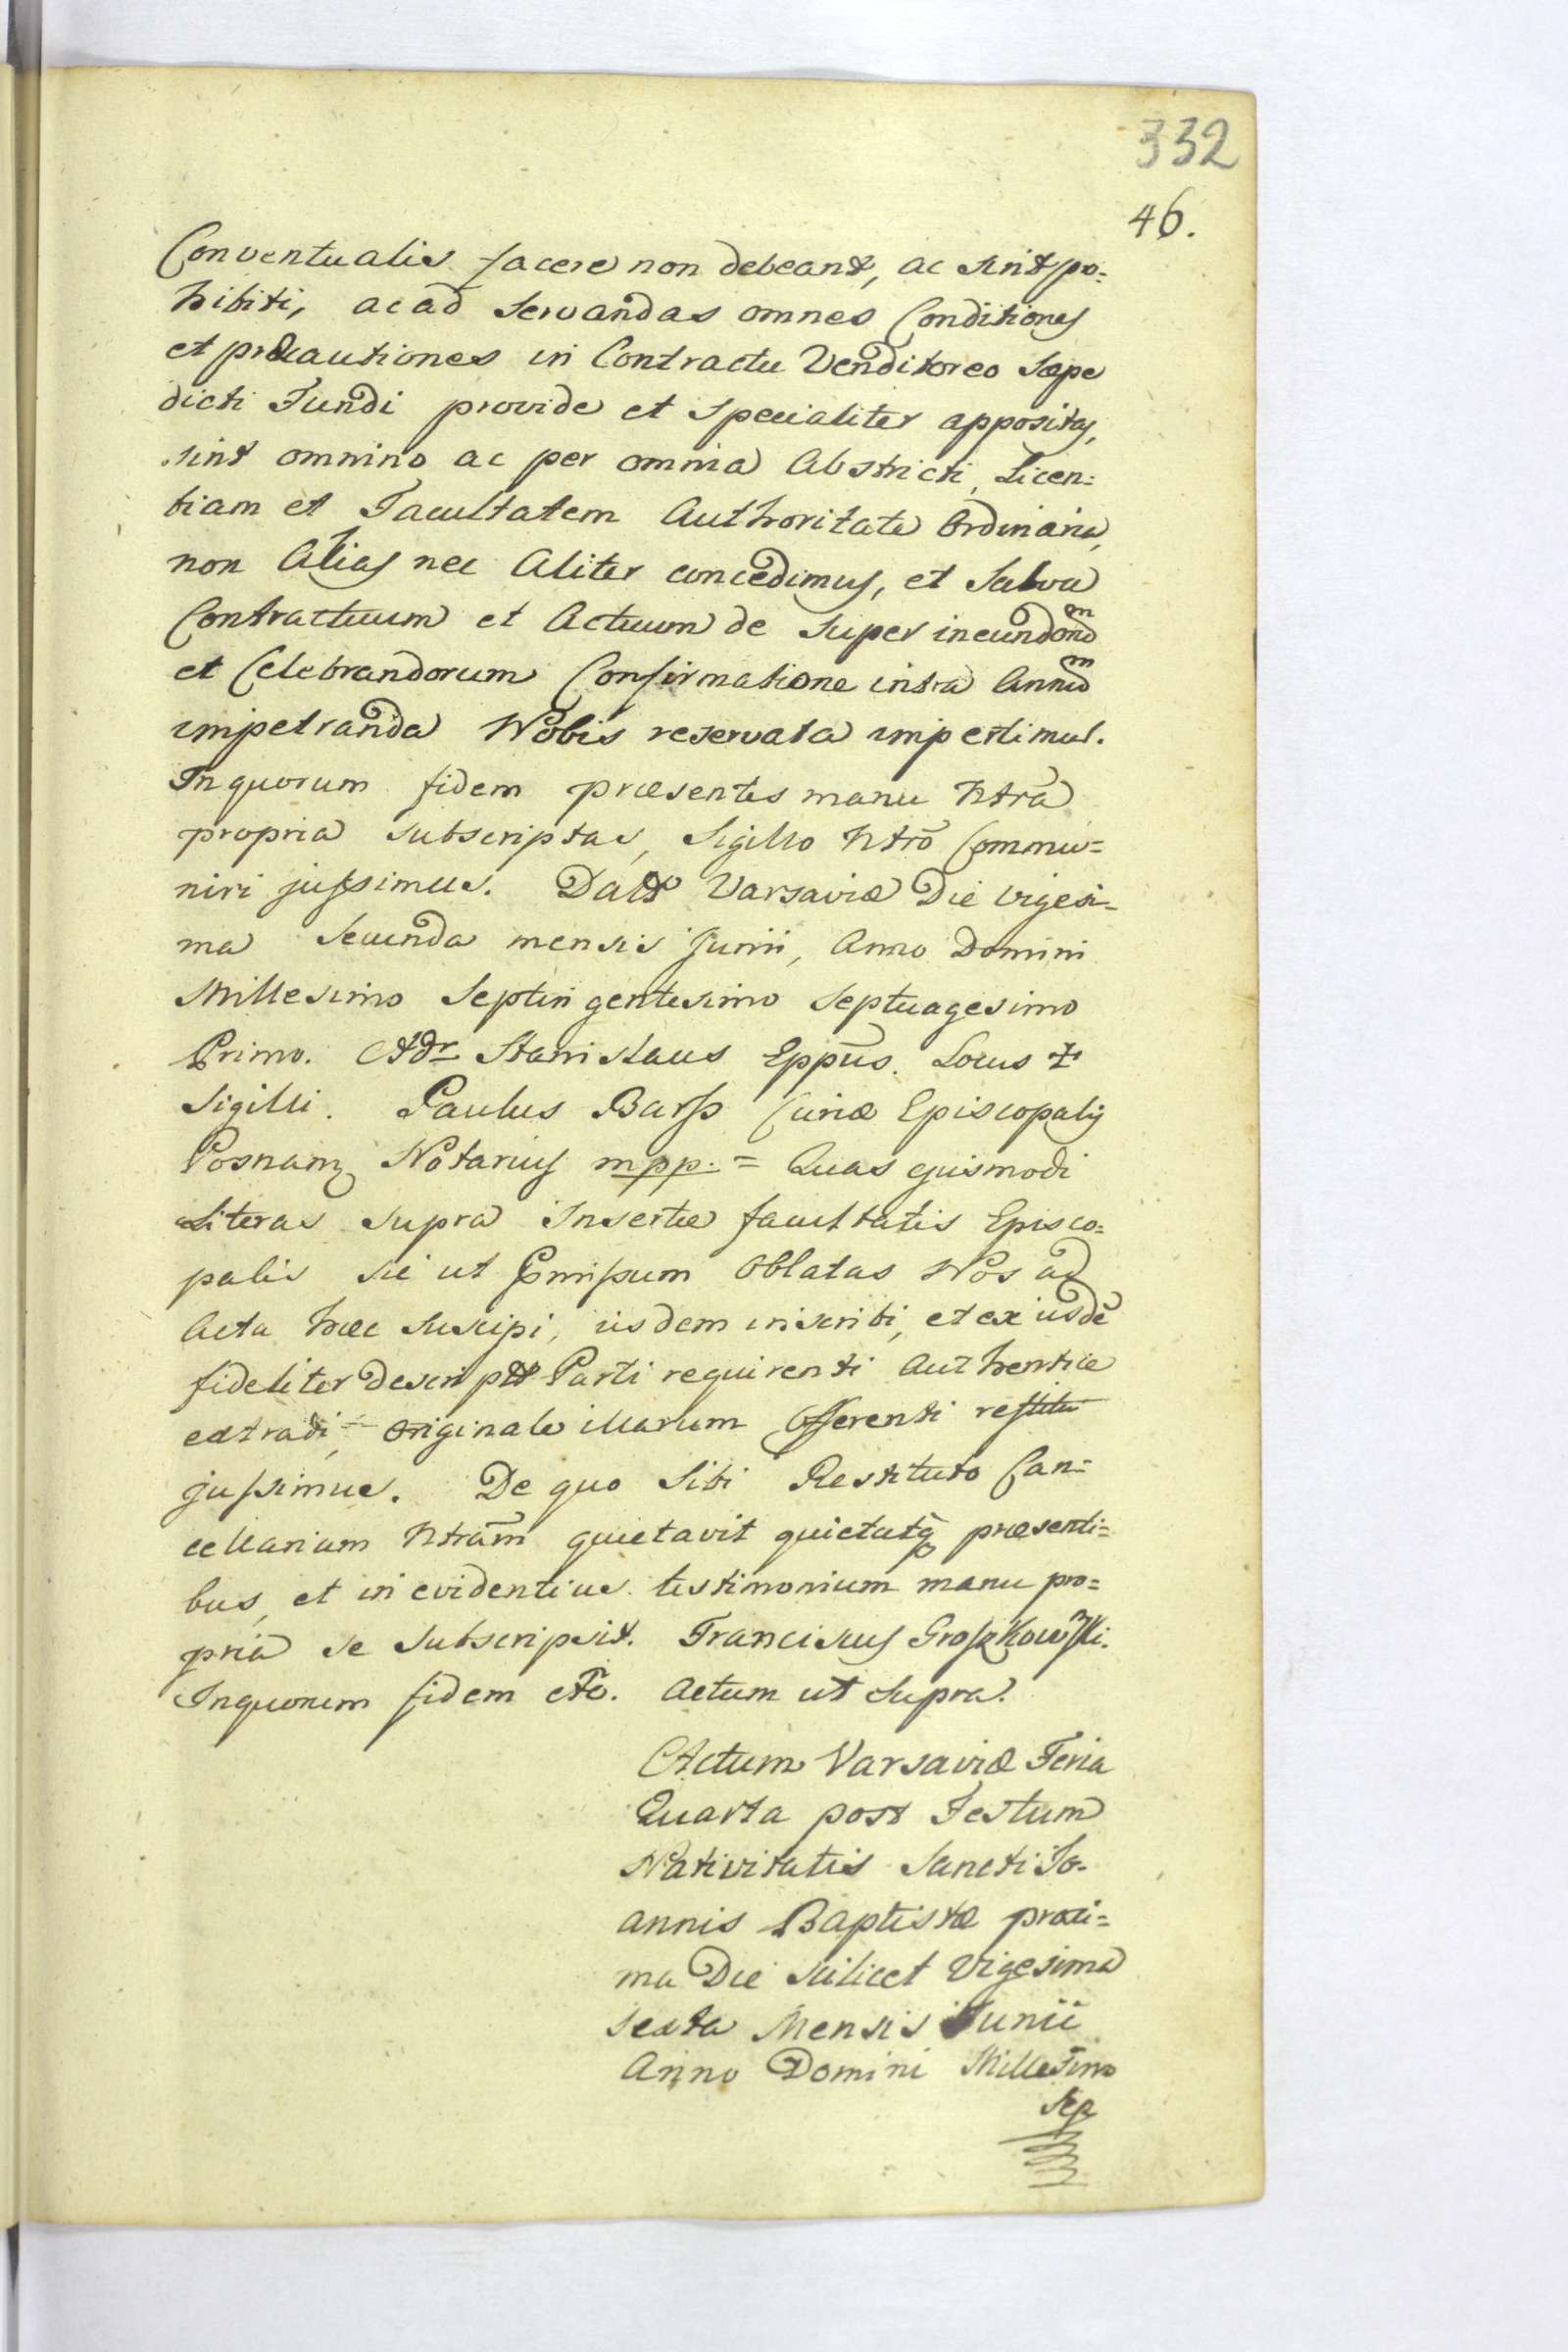 332
46.
Conventualis facere non debeant, ac sint pro=
hibiti, ac ad Servandas omnes Conditiones
et præcautiones in Contractu Venditoreo Sæpe
dicti Fundi provide et Specialiter appositas,
sint omnino ac per omnia Abstricti, Licen=
tiam et Facultatem Authoritate Ordinaria,
non Alias nec Aliter concedimus, et Salva
Contractuum et Actuum de Super ineundorum
et Celebrandorum Confirmatione intra Annum
impetranda Nobis reservata impertimur.
In quorum fidem præsentes manu Ntrā
propria subscriptas, Sigillo Ntrō Commu=
niri jussimus. Datt Varsaviæ Die vigesi=
ma Secunda mensis Junii, Anno Domini
Millesimo Septingentesimo Septuagesimo
Primo. Adr Stanislaus Eppūs. Locus +
Sigilli. Paulus Barss Curiæ Episcopalis
Posnan Notarius mpp. = Quas ejusmodi
Literas supra Insertæ facultatis Episco=
palis sic ut Præmissum Oblatas Nos ad
Acta hæc Suscipi, iisdem inscribi, et ex iisdē
fideliter Descriptt Parti requirenti Authentice
extradi, = originale illarum Offerenti restitui
jussimus. De quo Sibi Restituto Can=
cellariam Ntrām quietavit quietatq præsenti=
bus, et in evidentius testimonium manu pro=
pria se Subscripsit. Franciscus Groszkowski.
In quorum fidem etc. Actum ut Supra.
Actum Varsaviæ Feria
Quarta post Festum
Nativitatis Sancti Jo-
annis Baptistæ proxi=
ma Die scilicet Vigesima
sexta Mensis Junii
Anno Domini Millesimo
Sep